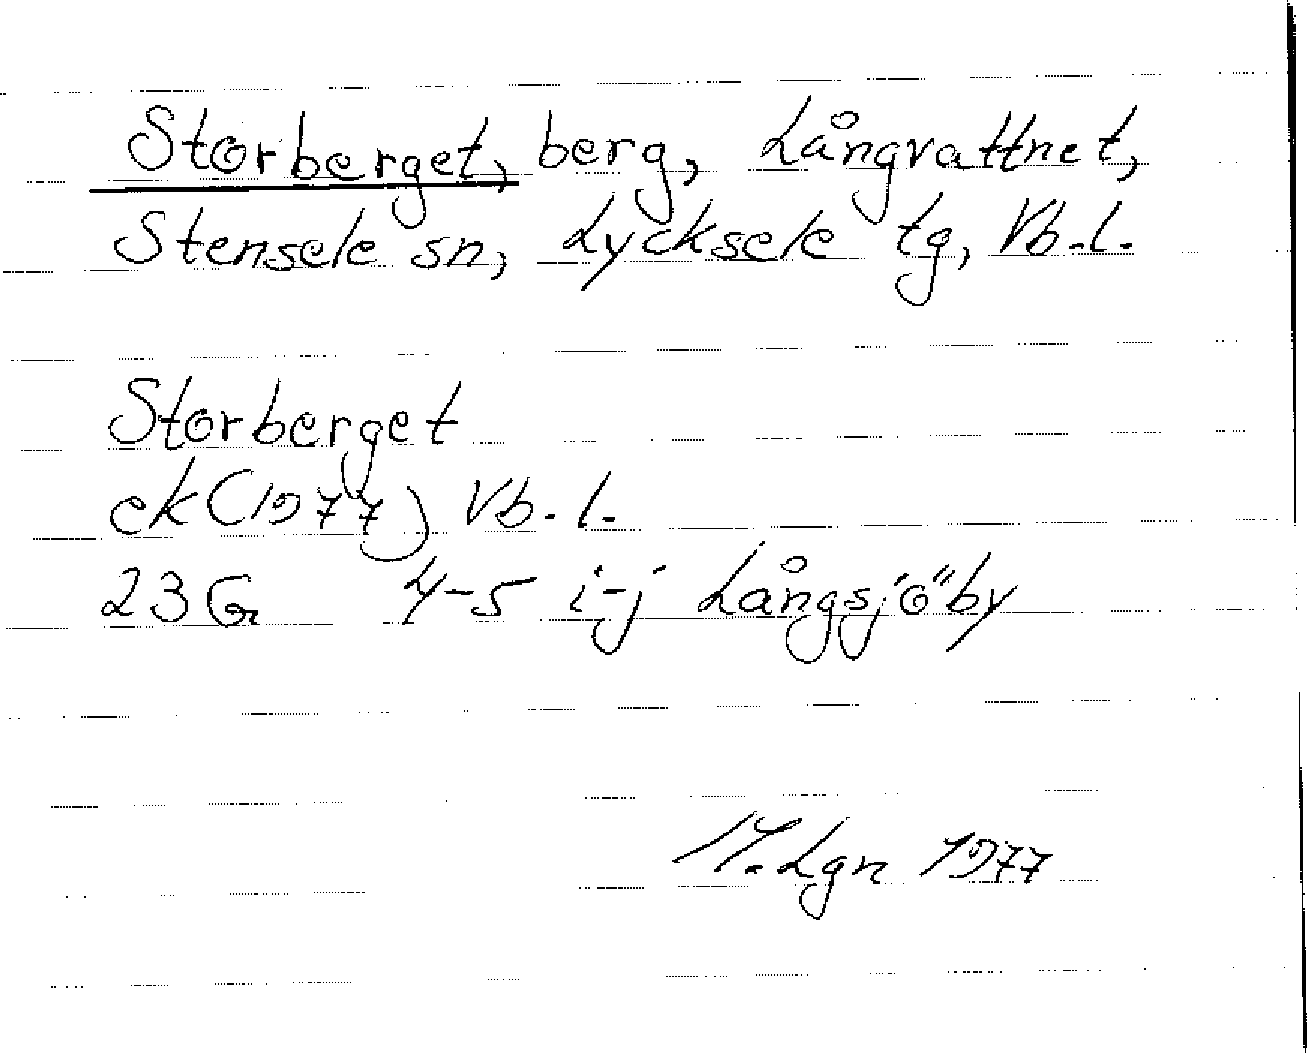 Storberget, berg, Långvattnet,
Stensele sn, Lycksele tg, Vb.l.
Storberget
ek (1977) Vb.l.
23G 4-5 i-j Långsjöby
Lgn 1977